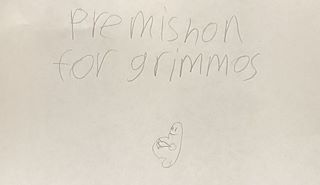 premishon
for grimmos